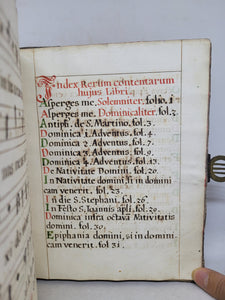 Index Rerum contentarum
hujus Libri.
Asperges me, Solemniter, folio. 1
Asperges me. Dominicaliter, fol. 2.
Antiph. de S. Martino, fol. 3.
Dominica 1. Adventus, fol. 4.
Dominica 2. Adventus, fol. 7.
Dominica 3. Adventus, fol. 9.
Dominica 4. Adventus, fol. 13.
De Nativitate Domini. fol. 20.
In Nativitate domini si in domini
cam venerit. fol. 23.
In die S. Stephani. fol. 26.
In Festo S. Joannis apli. fol. 29.
Dominica infra octava Nativitatis
domini. fol. 30.
Epiphania domini, si in domini
cam venerit. fol. 31.